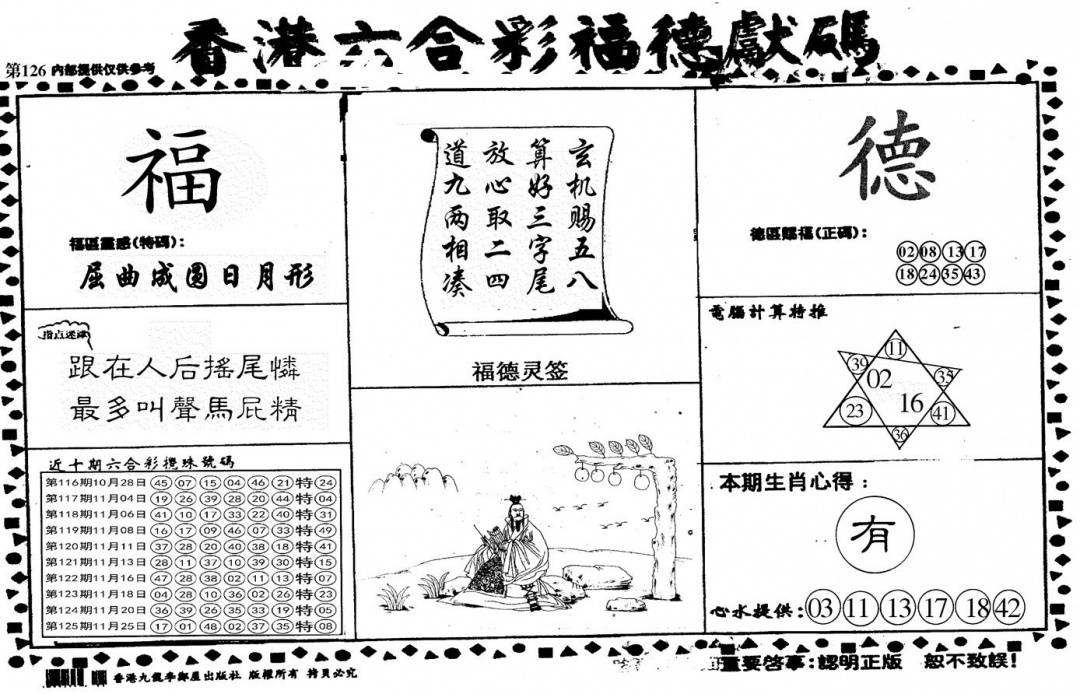 香港六合彩福德獻碼
第126 内部提供仅供参考
福
福區靈感(特碼):
屈曲成圆日月形
指点迷津
跟在人后搖尾憐
最多叫聲馬屁精
近十期六合彩攪珠號碼
第116期10月28日 45 07 15 04 46 21 特 24
第117期11月04日 19 26 39 28 20 44 特 04
第118期11月06日 41 10 17 33 22 40 特 31
第119期11月08日 16 17 09 46 07 33 特 49
第120期11月11日 37 28 20 40 38 18 特 41
第121期11月13日 28 11 37 10 39 30 特 15
第122期11月16日 47 28 38 02 11 13 特 07
第123期11月18日 04 28 10 36 02 26 特 23
第124期11月20日 36 39 26 35 33 19 特 05
第125期11月25日 17 01 48 02 37 35 特 08
玄机赐五八
算好三字尾
放心取二四
道九两相凑
福德灵签
德
德區赐福(正碼):
02 08 13 17
18 24 35 43
電腦計算特推
11
39 35
02
16
23 41
36
本期生肖心得:
有
心水提供: 03 11 13 17 18 42
香港九龍李鄭屋出版社 版權所有 拷貝必究
重要啓事:認明正版 恕不致誤!